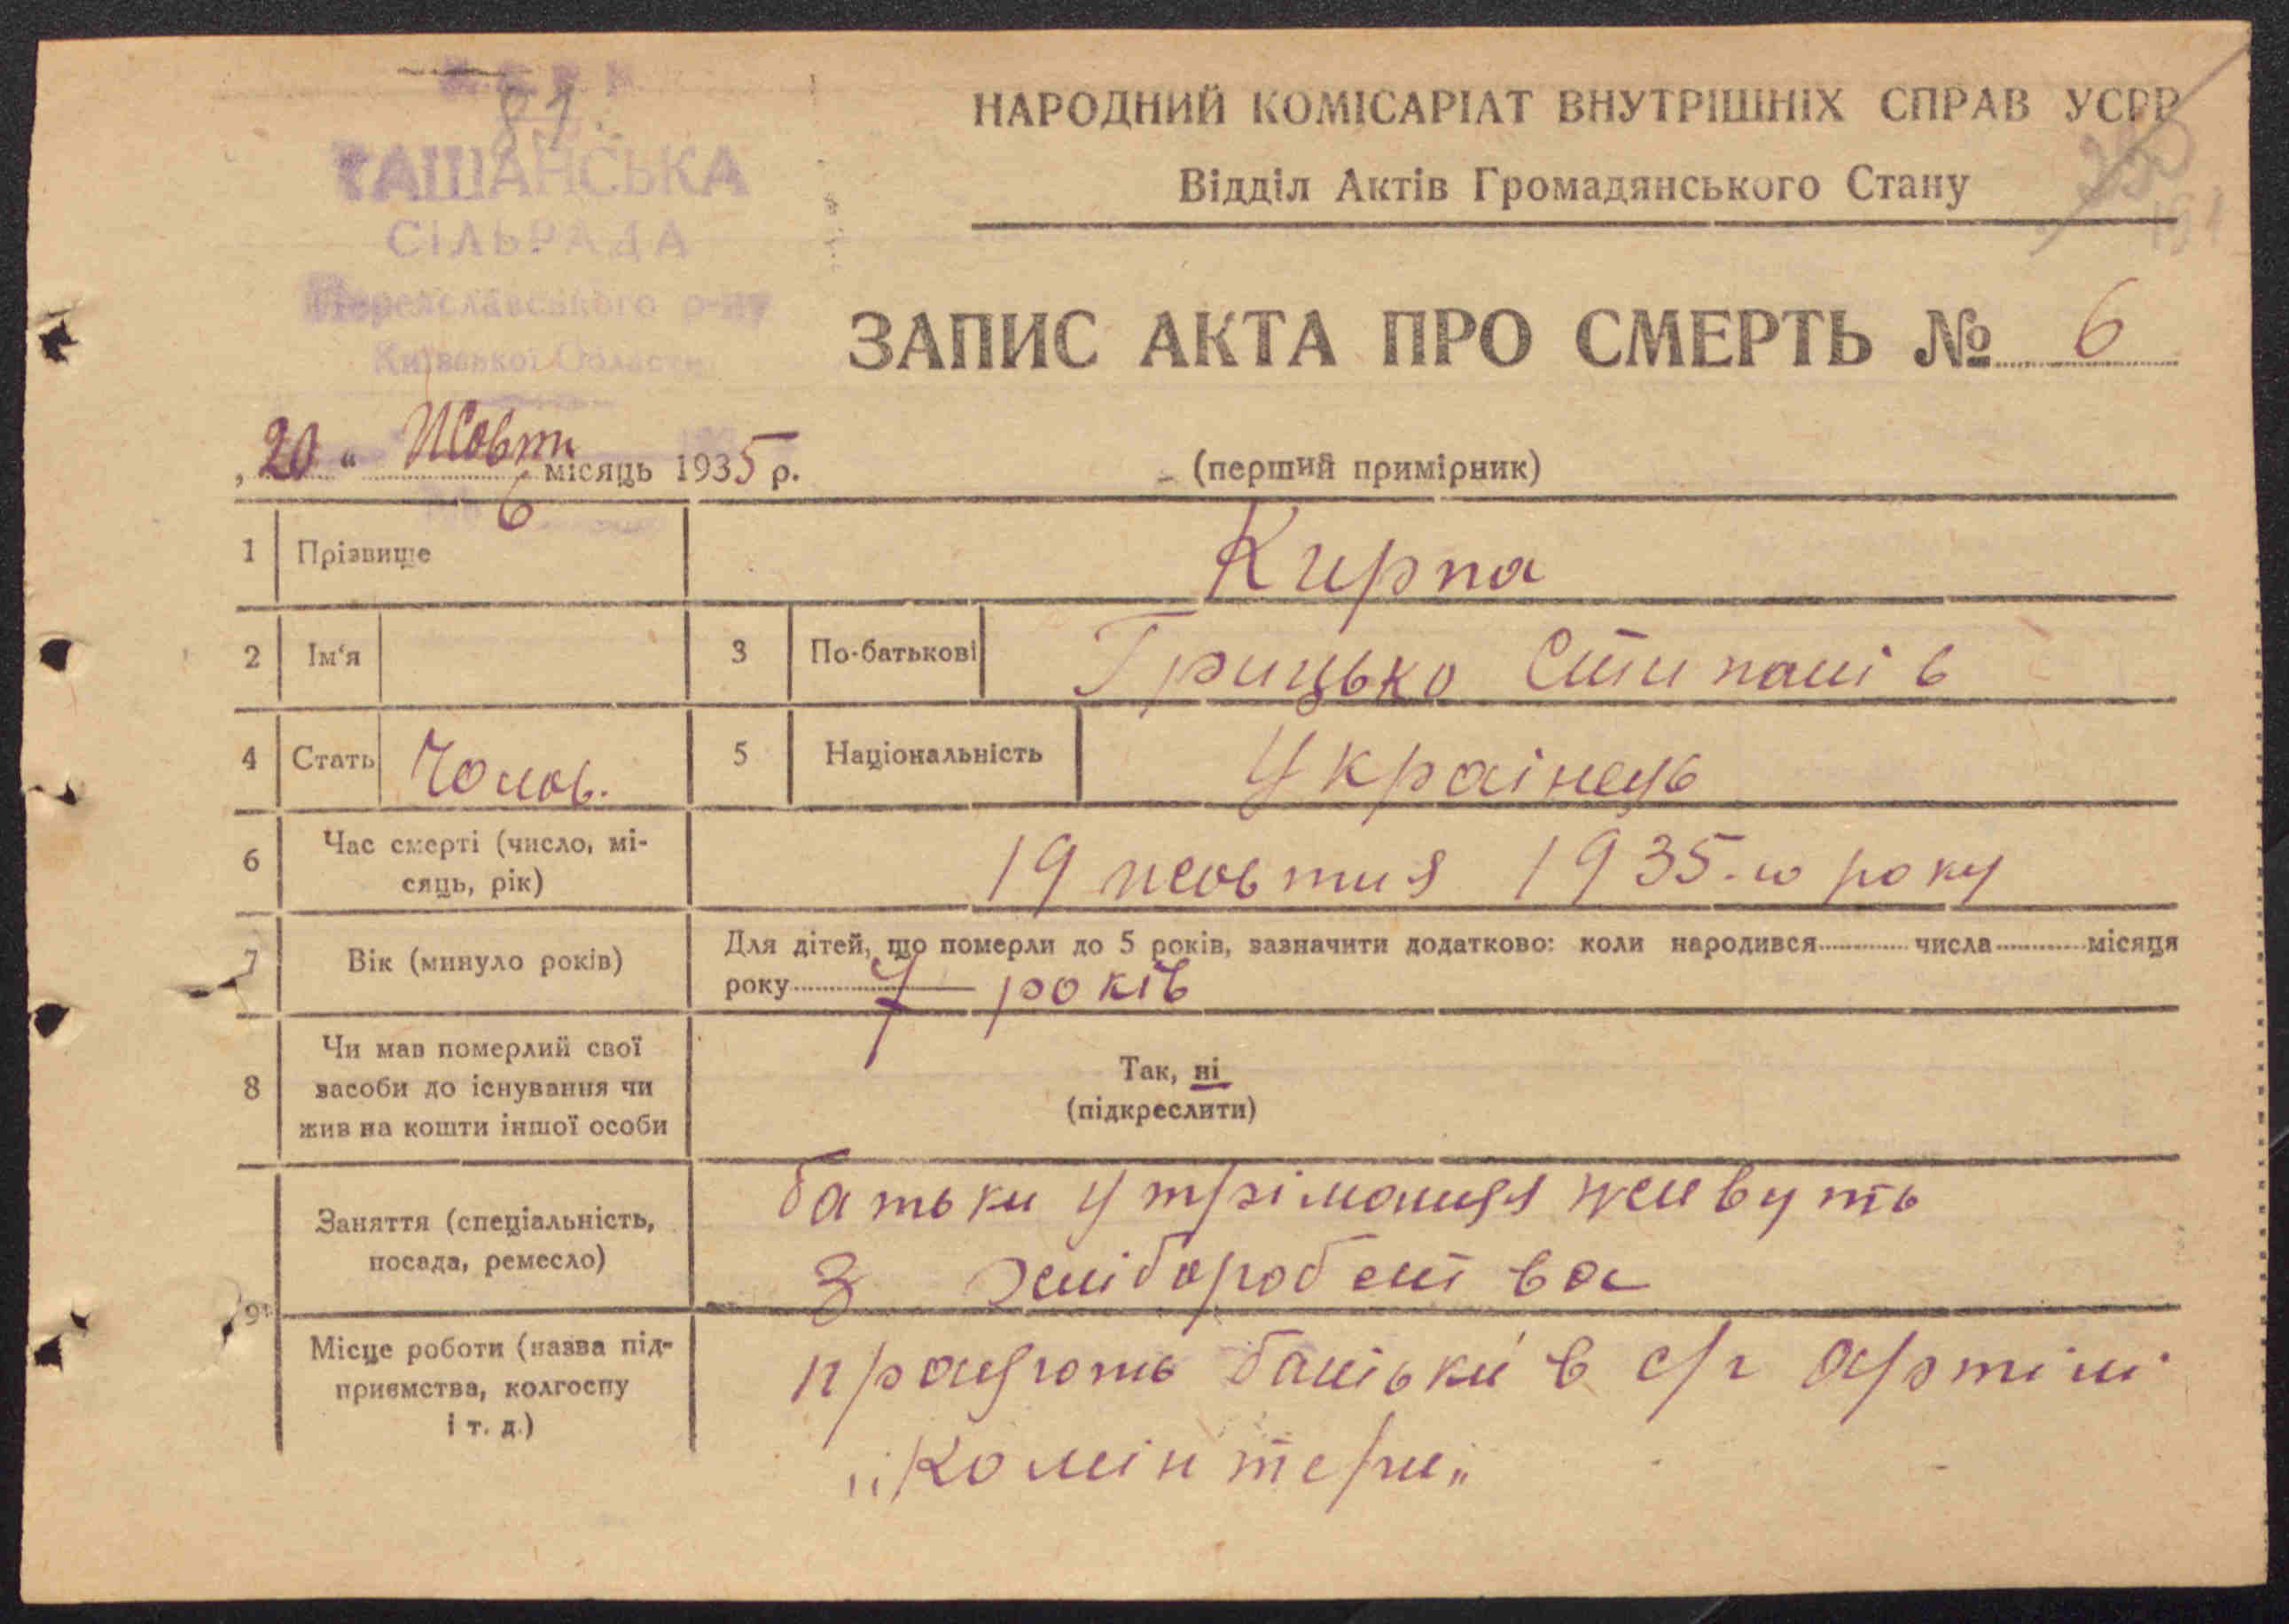 81
ТАШАНСЬКА
СІЛЬРАДА
Переяславського р-ну
Київської Області
НАРОДНИЙ КОМІСАРІАТ ВНУТРІШНІХ СПРАВ УСРР
Відділ Актів Громадянського Стану
191
ЗАПИС АКТА ПРО СМЕРТЬ № 6
„20“ Жовтн місяць 1935 р.
(перший примірник)
6
1 Прізвище Кирпа
2 Ім‘я 3 По-батькові Грицько Стипанів
4 Стать Чолов. 5 Національність Українець
6 Час смерті (число, мі-
сяць, рік) 19 жовтня 1935-го року
7 Вік (минуло років) Для дітей, що померли до 5 років, зазначити додатково: коли народився числа місяця
року 7 років
8 Чи мав померлий свої
засоби до існування чи
жив на кошти іншої особи
Так, ні
(підкреслити)
9 Заняття (спеціальність,
посада, ремесло)
батьки утрімання живуть
з хліборобства
Місце роботи (назва під-
приємства, колгоспу
і т. д.)
працують батьки в с/г артілі
„Комінтерн„